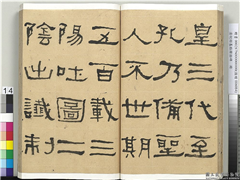 皇三代至
孔乃備聖
人不世期
五百載三
陽吐圖二
陰出讖制
14